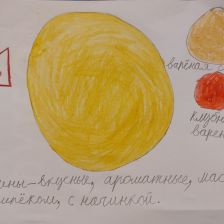 варёная
клубн
варень
ины-вкусные, ароматные, мас
ипёком, с начинкой.